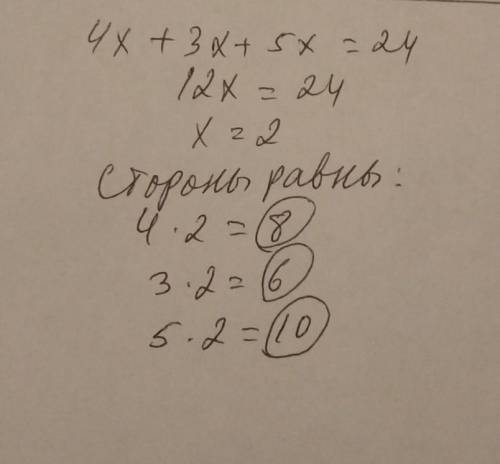 4x + 3x + 5x = 24
12x = 24
x = 2
Стороны равны:
4 · 2 = 8
3 · 2 = 6
5 · 2 = 10